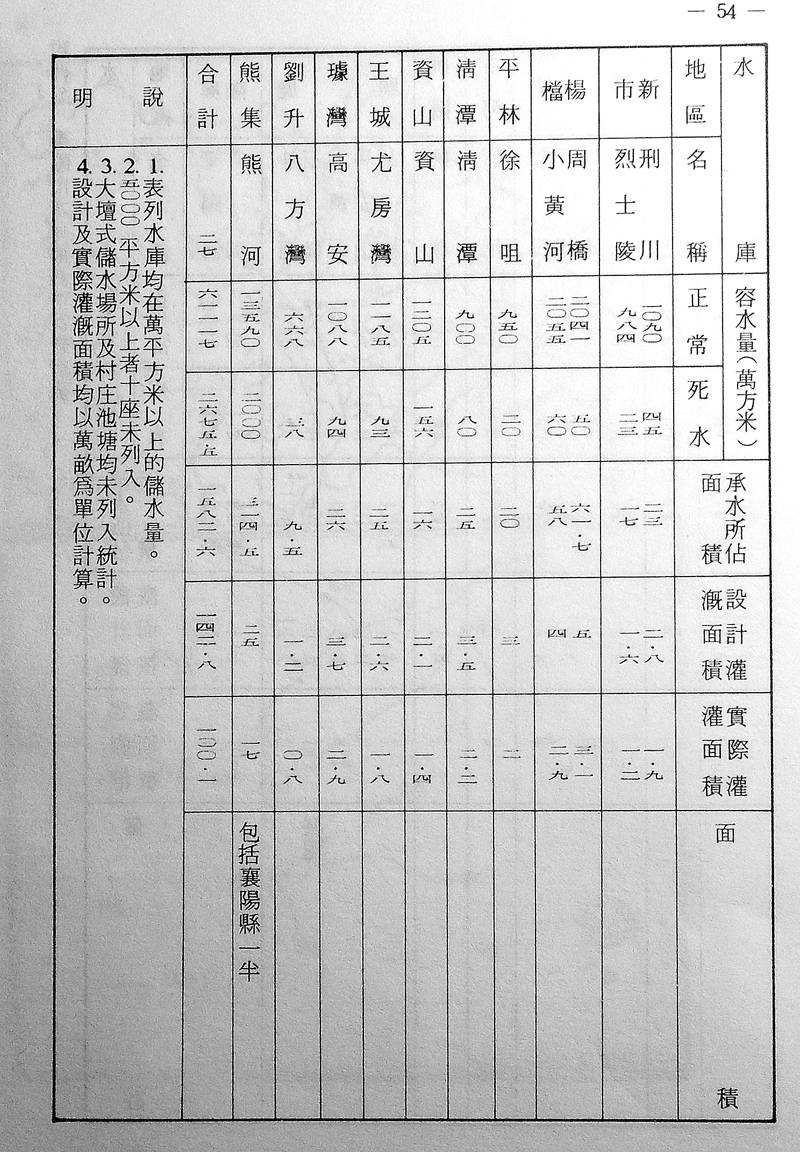 — 54 —
水庫
地區
名稱
容水量(萬方米)
正常
死水
承水所佔
面積
設計灌
漑面積
實際灌
灌面積
面積
新市
刑川 一〇九〇 四五 二三 二·八 一·九
烈士陵 九八四 二三 一七 一·六 一·二
楊檔
周橋 二〇四一 五〇 六一·七 五 三·一
小黃河 二〇五五 六〇 五八 四 二·九
平林 徐咀 九五〇 二〇 二〇 三 二
清潭 清潭 九〇〇 八〇 二五 三·五 二·二
資山 資山 一二〇五 一五六 一六 二·一 一·四
王城 尤房灣 一一八五 九三 二五 二·六 一·八
璩灣 高安 一〇八八 九四 二六 三·七 二·九
劉升 八方灣 六六八 三八 九·五 一·二 〇·八
熊集 熊河 一三五九〇 二〇〇〇 三一四·五 二五 一七 包括襄陽縣一半
合計 二七 二六七五·五 一五八二·六 一四二·八 一〇〇·一
說明
1.表列水庫均在萬平方米以上的儲水量。
2.五〇〇〇平方米以上者十座未列入。
3.大壇式儲水場所及村庄池塘均未列入統計。
4.設計及實際灌漑面積均以萬畝爲單位計算。